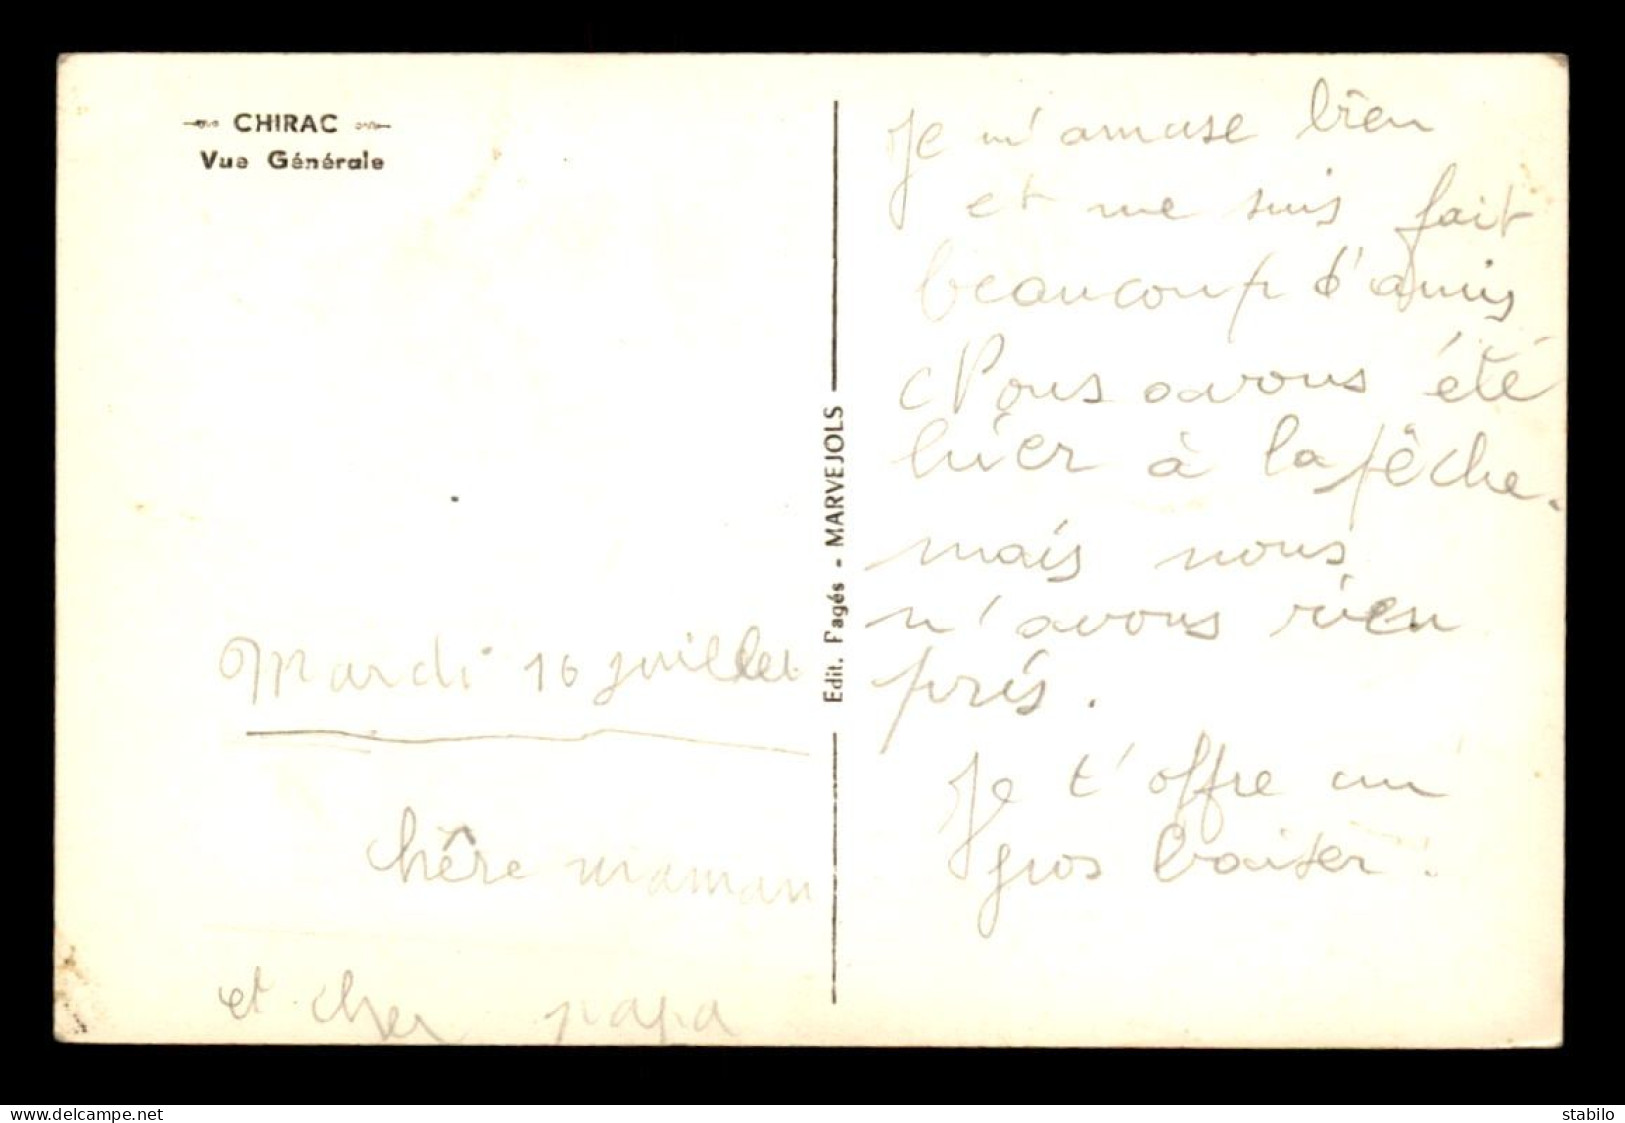 CHIRAC
Vue Générale
Mardi 16 juillet
chêre maman
et cher papa
Edit. Fagés - MARVEJOLS
Je m'amuse bien
et me suis fait
beaucoup d'amis
Nous avons été
hier à la pêche.
mais nous
n'avons rien
pris.
Je t'offre un
gros baiser.
www.delcampe.net
stabilo